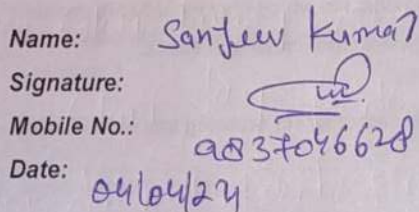 Name: Sanjeev Kumar
Signature:
Mobile No.: 9837046628
Date: 04/04/24